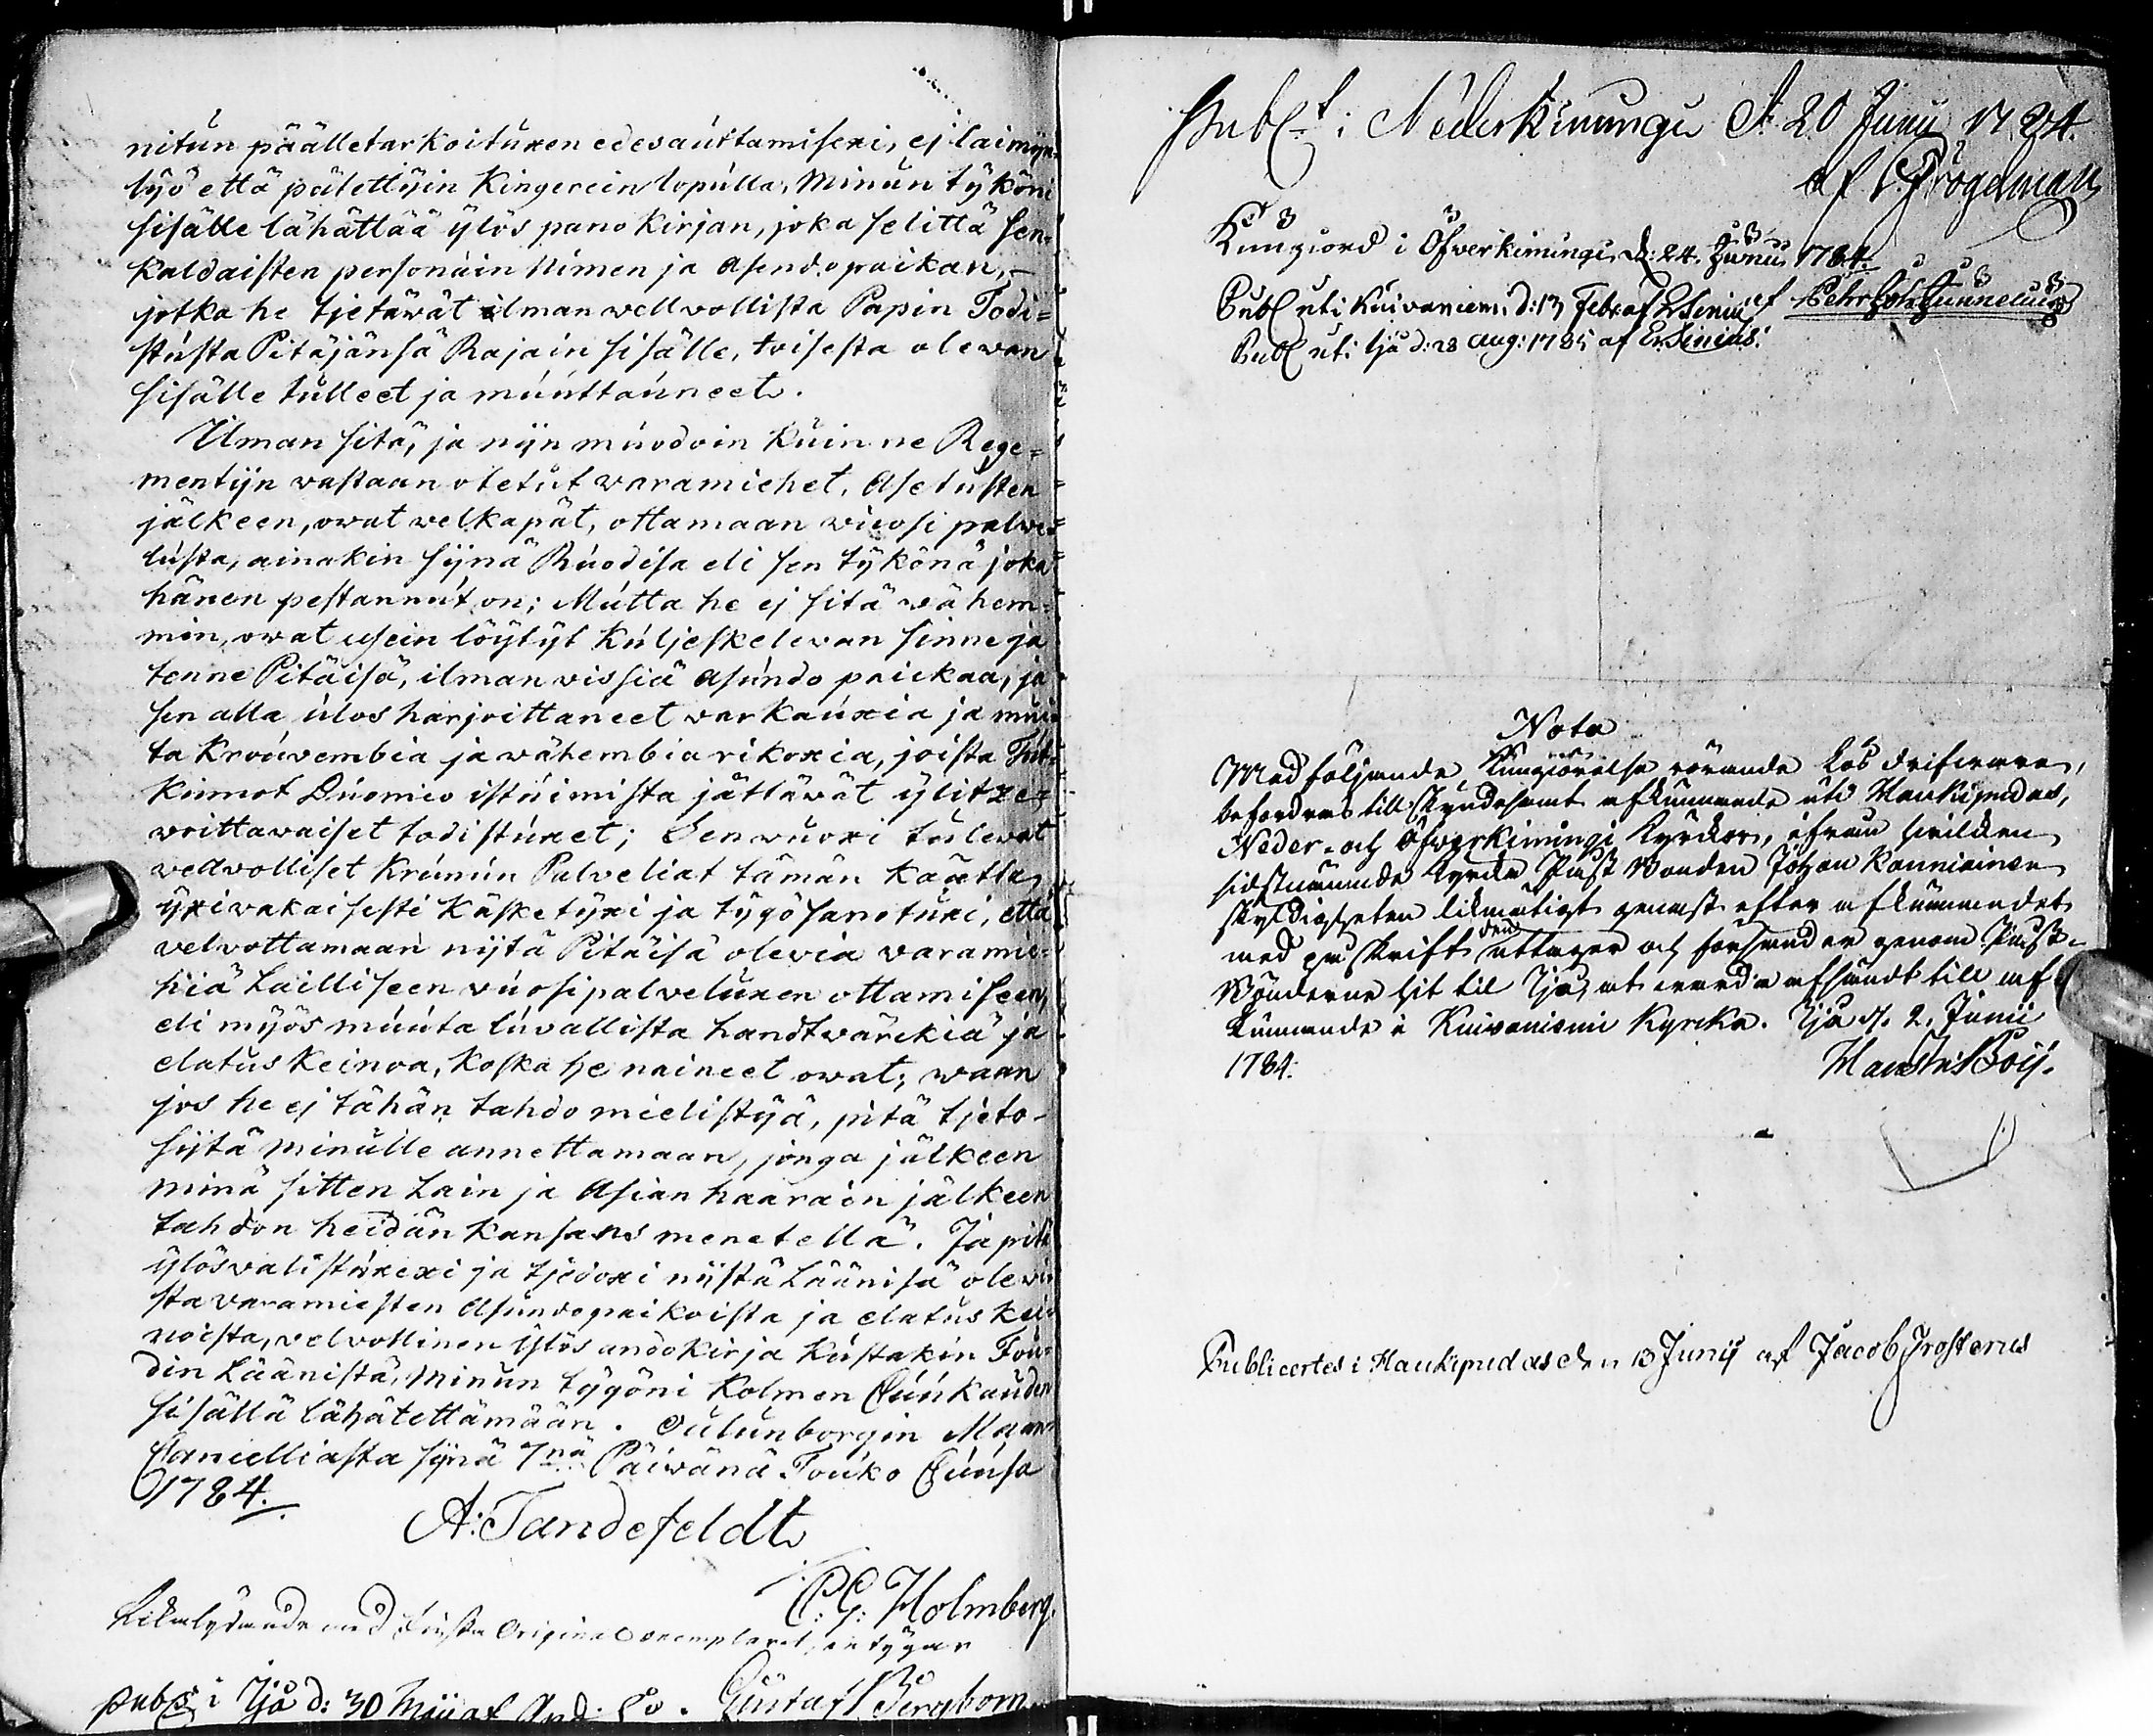 nitun päälletarkoituxen edesauttamisexi, ej laimyn-
lyö että pälettyin Kingerein lopulla, Minun tyköni
sisälle lähättää ylös pano Kirjan, joka selittä sen-
kaldaisten personain Nimen ja Asendo paikan,
jotka he tjetäwät ilman wellvollista Papin Todi=
stusta Pitäjänsä Rajain sisälle, toisesta olewan
sisälle tulleet ja muuttauneet.
Ilman sitä, ja nyn muodoin Kuin ne Rege=
mentyn vastaan otetut waramiehet, Asetusten
jälkeen, owat welkapät, ottamaan wuosi palwe=
lusta, ainakin synä Ruodisa eli sen tykönä joka
hänen pestannut on; Mutta he ej sitä wähem=
min, owat usein löytyt Kuljeskelewan sinne ja
tenne Pitäisä, ilman vissiä Asundo paickaa, ja
sen alla ulos harjoittaneet warkauxia ja mui=
ta kroúvembia ja wähembia rikoxia, joista Tut=
kinnot Duomio istuimista jättäwät ylitze=
woittawaiset todistuxet; Sen wuoxi tulewat
wellvolliset Krunun Palveliat tämän kautta
yxiwakaisesti Käsketyxi ja tygösanotuxi, että
velvottamaan nytä Pitäisä olevia varamie=
hiä Lailliseen vuosipalveluxen ottamiseen,
eli myös muuta luvallista handtwärckiä ja
elatus keinoa, koska he naineet owat; waan
jos he ej tähän tahdo mielistyä, pitä tjeto-
sytä Minulle annettamaan, jonga jälkeen
Minä sitten Lain ja Asian haarain jälkeen
tahdon heidän Kansans menetellä. Ja pitä
ylösvalistuxexi ja tjedoxi niistä Läänisä olewi
sta varamiesten Asundopaikoista ja elatus kei=
noista, velvollinen Ylös andokirja Kustakin Fou=
din Läänistä, Minun tygöni Kolmen Cuukauden
sisällä lähätettämään. Oulunborgin Maan
Cancelliasta synä 7nä Päiwänä Touko Cuusa
1784.
A: Tandefeldt
C: G: Holmberg.
Likalydande med Finska Original exemplaret, intygar
publ: i Ijo d: 30 Maii af And: Gustaf Bergbom
Publ-t i Nederkimingi d: 20 Junii 1784.
af Frogdman
Kungiord i Öfverkimingi d: 24. Junii 1784.
af Pehr Joh: Junnelius
Publ uti Kuivaniemi d: 13 Febr: af E. Senius
Publ uti Ijo d: 28 Aug: 1785 af E. Senius.
Nota
Medföljande Kungiörelse rörande Lösdrifware,
befordras till skyndsamt afkunnande uti Haukipudas,
Neder- och Öfwerkimingi Kyrckor, ifrån hwilken
sidstnämnde Kyrka Påst Bonden Johan Kanniainen
skyldigheten likmätigt genast efter afkunnandet
med påskrift den uttager och forsänder genom Påst-
Bönderne hit til Ijo, at warda afsändt till af-
kunnande i Kuivaniemi Kyrcka. Ijo d. 2. Junii
1784.
Hans Boij.
Publicertes i Haukipudas den 13 Junij af Jacob Frosterus